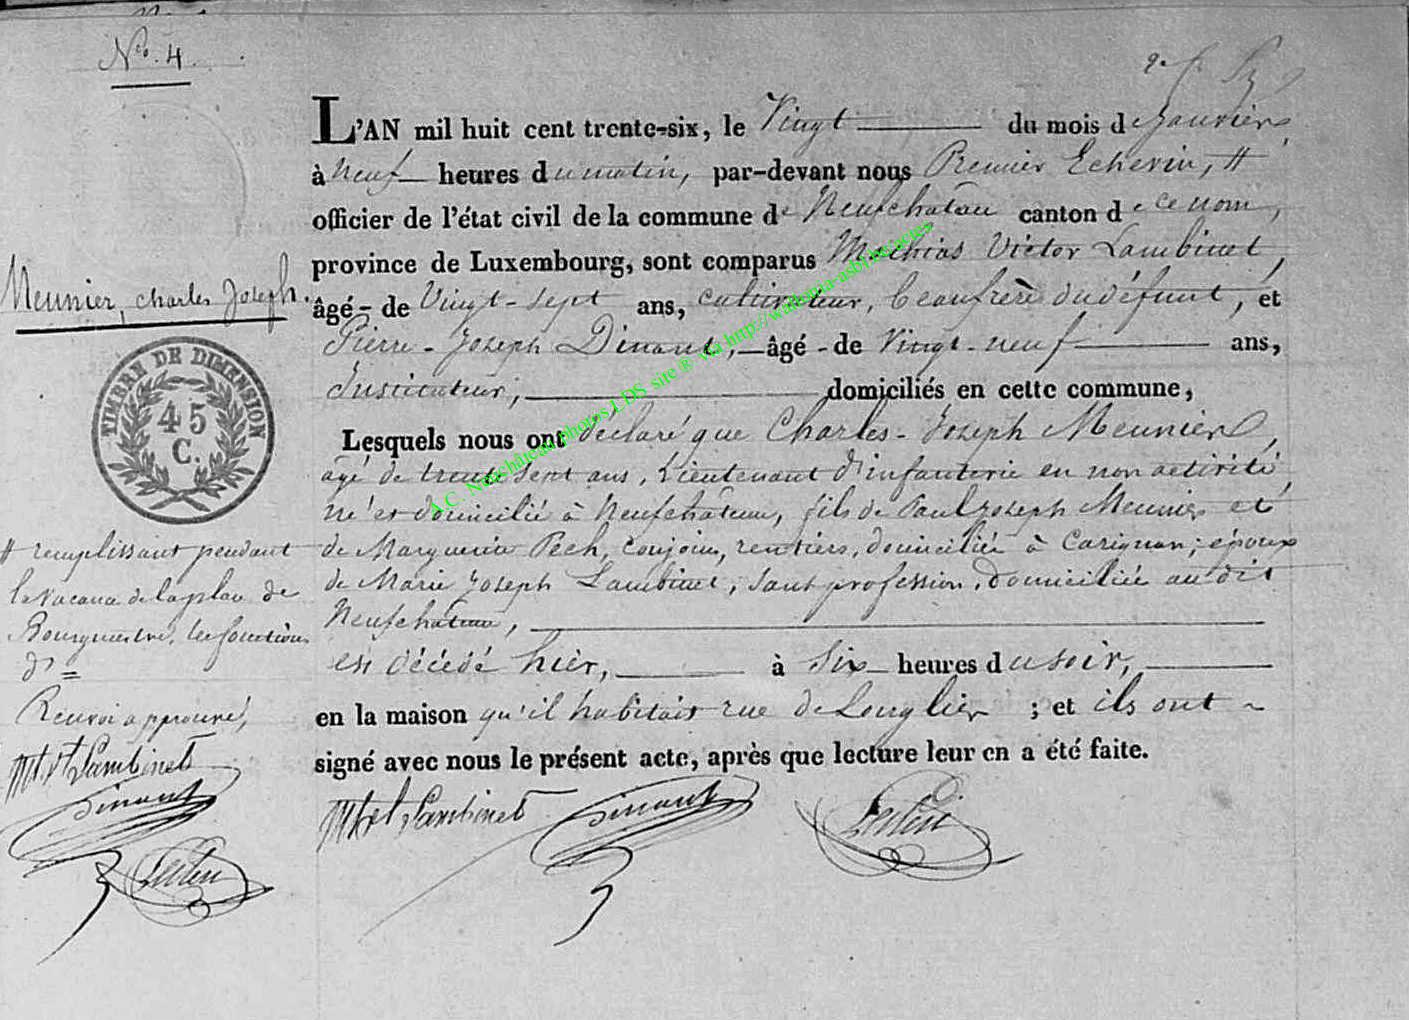 No. 4.
L'AN mil huit cent trente-six, le Vingt du mois de Janvier
à Neuf heures du matin, par-devant nous Premier Echevin, #
officier de l'état civil de la commune de Neufchatau canton de ce nom,
province de Luxembourg, sont comparus Mathias Victor Lambinet,
âgé - de Vingt-sept ans, cultivateur, beaufrère du défunt, et
Pierre-Joseph Dinant, âgé - de Vingt-neuf ans,
Instituteur, domiciliés en cette commune,
Lesquels nous ont déclaré que Charles-Joseph Meunier,
agé de trente sept ans, Lieutenant d'infanterie en non activité,
né et domicilié à Neufchâteau, fils de Paul Joseph Meunier et
de Marguerite Pech, conjoins, rentiers, domiciliés à Carignan; époux
de Marie Joseph Lambinet, sans profession, domiciliée au dit
Neufchâteau,
est décédé hier, à Six heures du soir,
en la maison qu'il habitait rue de Longlier ; et ils ont
signé avec nous le présent acte, après que lecture leur en a été faite.
Lambinet Dinant
Meunier, charles Joseph.
TIMBRE DE DIMENSION
45
C.
# remplissant pendant
la vacance de la place de
Bourgmestre, les fonctions
d'=
Renvoi approuvé,
Lambinet
Dinant
A.C. Neufchâteau photos LDS site ® via http://wallonia-asbl.be/actes